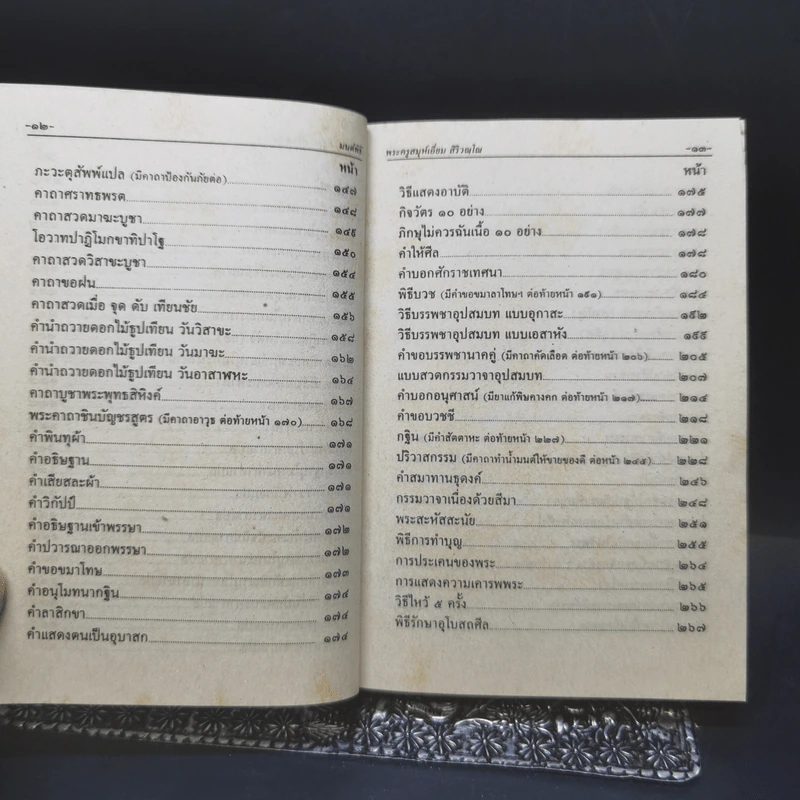 -๑๒-
มนต์พิธี
หน้า
ภะวะตุสัพพ์แปล (มีคาถาป้องกันภัยต่อ) ๑๔๗
คาถาศราทธพรต ๑๔๘
คาถาสวดมาฆะบูชา ๑๔๙
โอวาทปาฏิโมกขาทิปาโฐ ๑๕๐
คาถาสวดวิสาขะบูชา ๑๕๔
คาถาขอฝน ๑๕๕
คาถาสวดเมื่อ จุด ดับ เทียนชัย ๑๕๖
คำนำถวายดอกไม้ธูปเทียน วันวิสาขะ ๑๕๘
คำนำถวายดอกไม้ธูปเทียน วันมาฆะ ๑๖๒
คำนำถวายดอกไม้ธูปเทียน วันอาสาฬหะ ๑๖๔
คาถาบูชาพระพุทธสิหิงค์ ๑๖๗
พระคาถาชินบัญชรสูตร (มีคาถาอาวุธ ต่อท้ายหน้า ๑๗๐) ๑๖๘
คำพินทุผ้า ๑๗๑
คำอธิษฐาน ๑๗๑
คำเสียสละผ้า ๑๗๑
คำวิกัปป์ ๑๗๑
คำอธิษฐานเข้าพรรษา ๑๗๒
คำปวารณาออกพรรษา ๑๗๒
คำขอขมาโทษ ๑๗๓
คำอนุโมทนากฐิน ๑๗๔
คำลาสิกขา ๑๗๔
คำแสดงตนเป็นอุบาสก ๑๗๔
พระครูสมุห์เอี่ยม สิริวณฺโณ -๑๓-
หน้า
วิธีแสดงอาบัติ ๑๗๕
กิจวัตร ๑๐ อย่าง ๑๗๗
ภิกษุไม่ควรฉันเนื้อ ๑๐ อย่าง ๑๗๘
คำให้ศีล ๑๗๘
คำบอกศักราชเทศนา ๑๘๐
พิธีบวช (มีคำขอขมาลาโทษฯ ต่อท้ายหน้า ๑๙๑) ๑๘๔
วิธีบรรพชาอุปสมบท แบบอุกาสะ ๑๙๒
วิธีบรรพชาอุปสมบท แบบเอสาหัง ๑๙๙
คำขอบรรพชานาคคู่ (มีคาถาคัดเลือด ต่อท้ายหน้า ๒๐๖) ๒๐๕
แบบสวดกรรมวาจาอุปสมบท ๒๐๗
คำบอกอนุศาสน์ (มียาแก้พิษคางคก ต่อท้ายหน้า ๒๑๗) ๒๑๔
คำขอบวชชี ๒๑๘
กฐิน (มีคำสัตตาหะ ต่อท้ายหน้า ๒๒๗) ๒๒๑
ปริวาสกรรม (มีคาถาทำน้ำมนต์ให้ขายของดี ต่อหน้า ๒๔๕) ๒๒๘
คำสมาทานธุดงค์ ๒๔๖
กรรมวาจาเนื่องด้วยสีมา ๒๔๘
พระสะหัสสะนัย ๒๕๑
พิธีการทำบุญ ๒๕๕
การประเคนของพระ ๒๖๔
การแสดงความเคารพพระ ๒๖๕
วิธีไหว้ ๕ ครั้ง ๒๖๖
พิธีรักษาอุโบสถศีล ๒๖๗